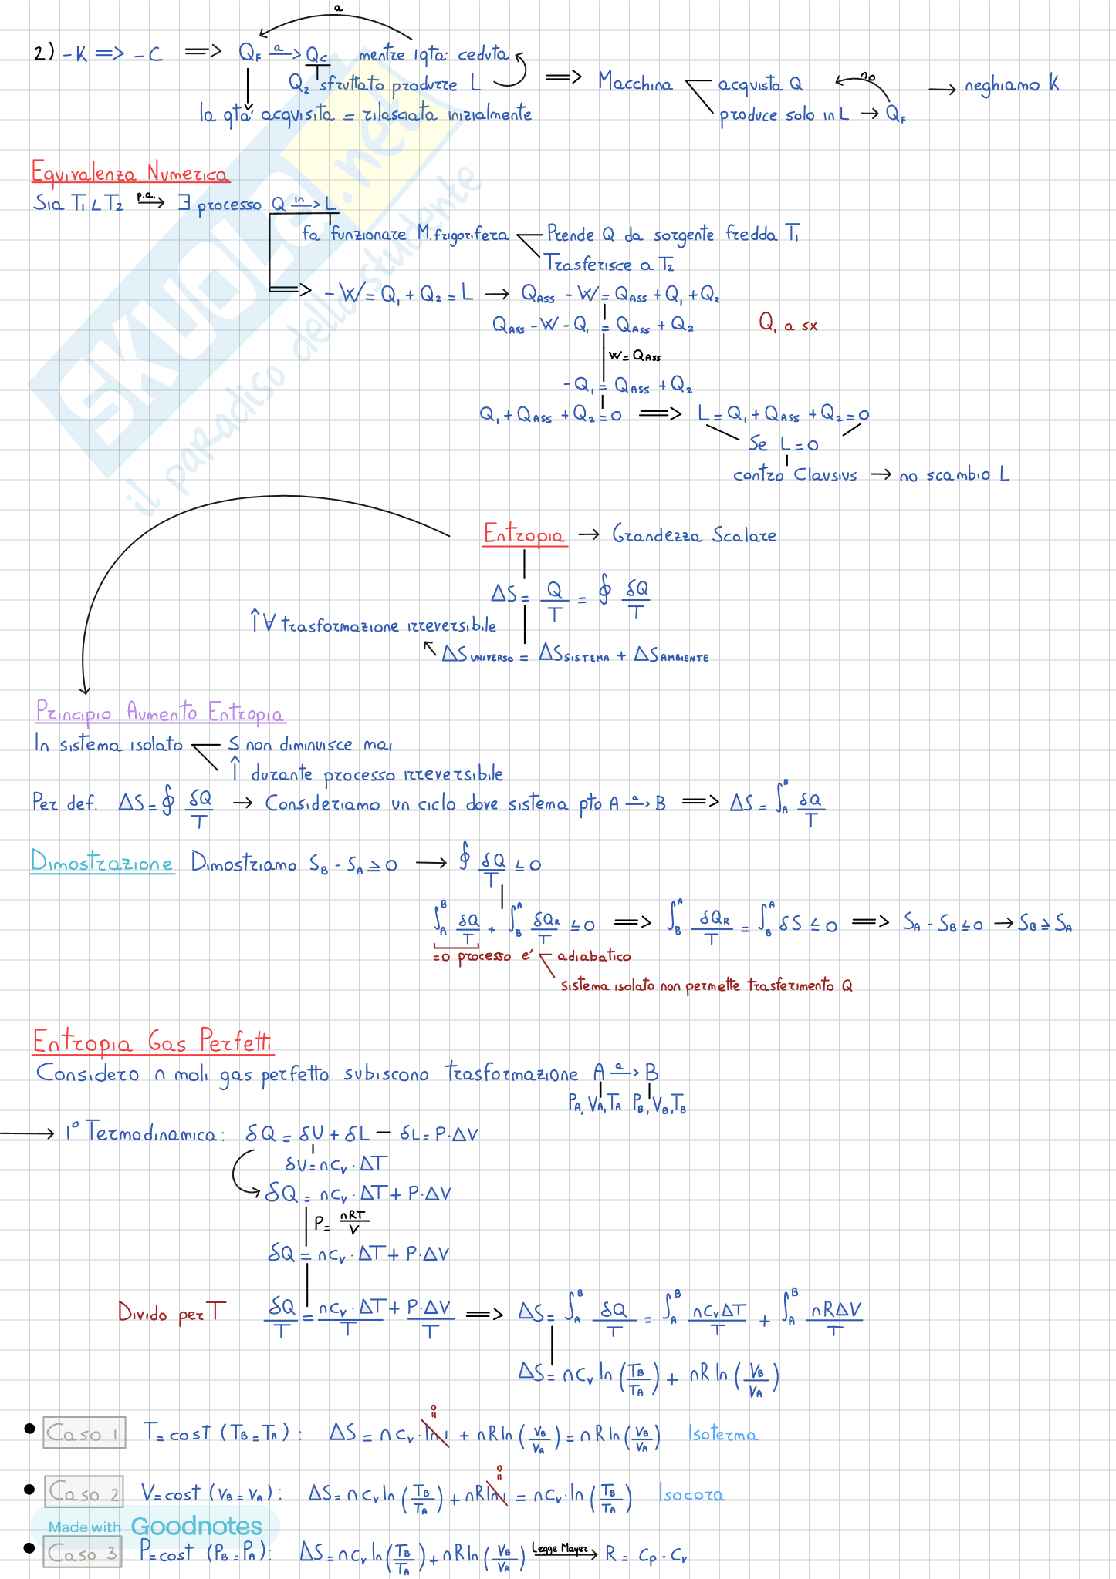 a
2) -K => -C => QF a→ QC mentre 1qta: ceduta
Q2 sfruttato produrre L => Macchina acquista Q no → neghiamo K
la qta' acquisita = rilasciata inizialmente produce solo in L → QF
Equivalenza Numerica
Sia T1 < T2 p.a.→ ∃ processo Q in→ L
fa funzionare M.frigorifera Prende Q da sorgente fredda T1
Trasferisce a T2
=> -W = Q1 + Q2 = L → QASS - W = QASS + Q1 + Q2
QASS - W - Q1 = QASS + Q2 Q1 a sx
W = QASS
-Q1 = QASS + Q2
Q1 + QASS + Q2 = 0 => L = Q1 + QASS + Q2 = 0
Se L = 0
contro Clausius → no scambio L
Entropia → Grandezza Scalare
ΔS = Q/T = ∮ δQ/T
↑∀ trasformazione irreversibile
ΔSUNIVERSO = ΔSSISTEMA + ΔSAMBIENTE
Principio Aumento Entropia
In sistema isolato S non diminuisce mai
↑ durante processo irreversibile
Per def. ΔS = ∮ δQ/T → Consideriamo un ciclo dove sistema pto A a→ B => ΔS = ∫A^B δQ/T
Dimostrazione Dimostriamo SB - SA ≥ 0 → ∮ δQ/T ≤ 0
∫A^B δQ/T + ∫B^A δQR/T ≤ 0 => ∫B^A δQR/T = ∫B^A δS ≤ 0 => SA - SB ≤ 0 → SB ≥ SA
=0 processo e' adiabatico
sistema isolato non permette trasferimento Q
Entropia Gas Perfetti
Considero n moli gas perfetto subiscono trasformazione A a→ B
PA, VA, TA PB, VB, TB
→ 1° Termodinamica: δQ = δU + δL — δL = P·ΔV
δU = ncv·ΔT
δQ = ncv·ΔT + P·ΔV
P = nRT/V
δQ = ncv·ΔT + P·ΔV
Divido per T δQ/T = ncv·ΔT/T + P·ΔV/T => ΔS = ∫A^B δQ/T = ∫A^B ncvΔT/T + ∫A^B nRΔV/T
ΔS = ncv ln(TB/TA) + nR ln(VB/VA)
• Caso 1 T = cost (TB = TA): ΔS = ncv · ln 1 0 + nR ln(VB/VA) = nR ln(VB/VA) Isoterma
• Caso 2 V = cost (VB = VA): ΔS = ncv ln(TB/TA) + nR ln 1 0 = ncv · ln(TB/TA) Isocora
Made with Goodnotes
• Caso 3 P = cost (PB = PA): ΔS = ncv ln(TB/TA) + nR ln(VB/VA) Legge Mayer→ R = cp - cv
SKUOLA.net
il paradiso dello studente